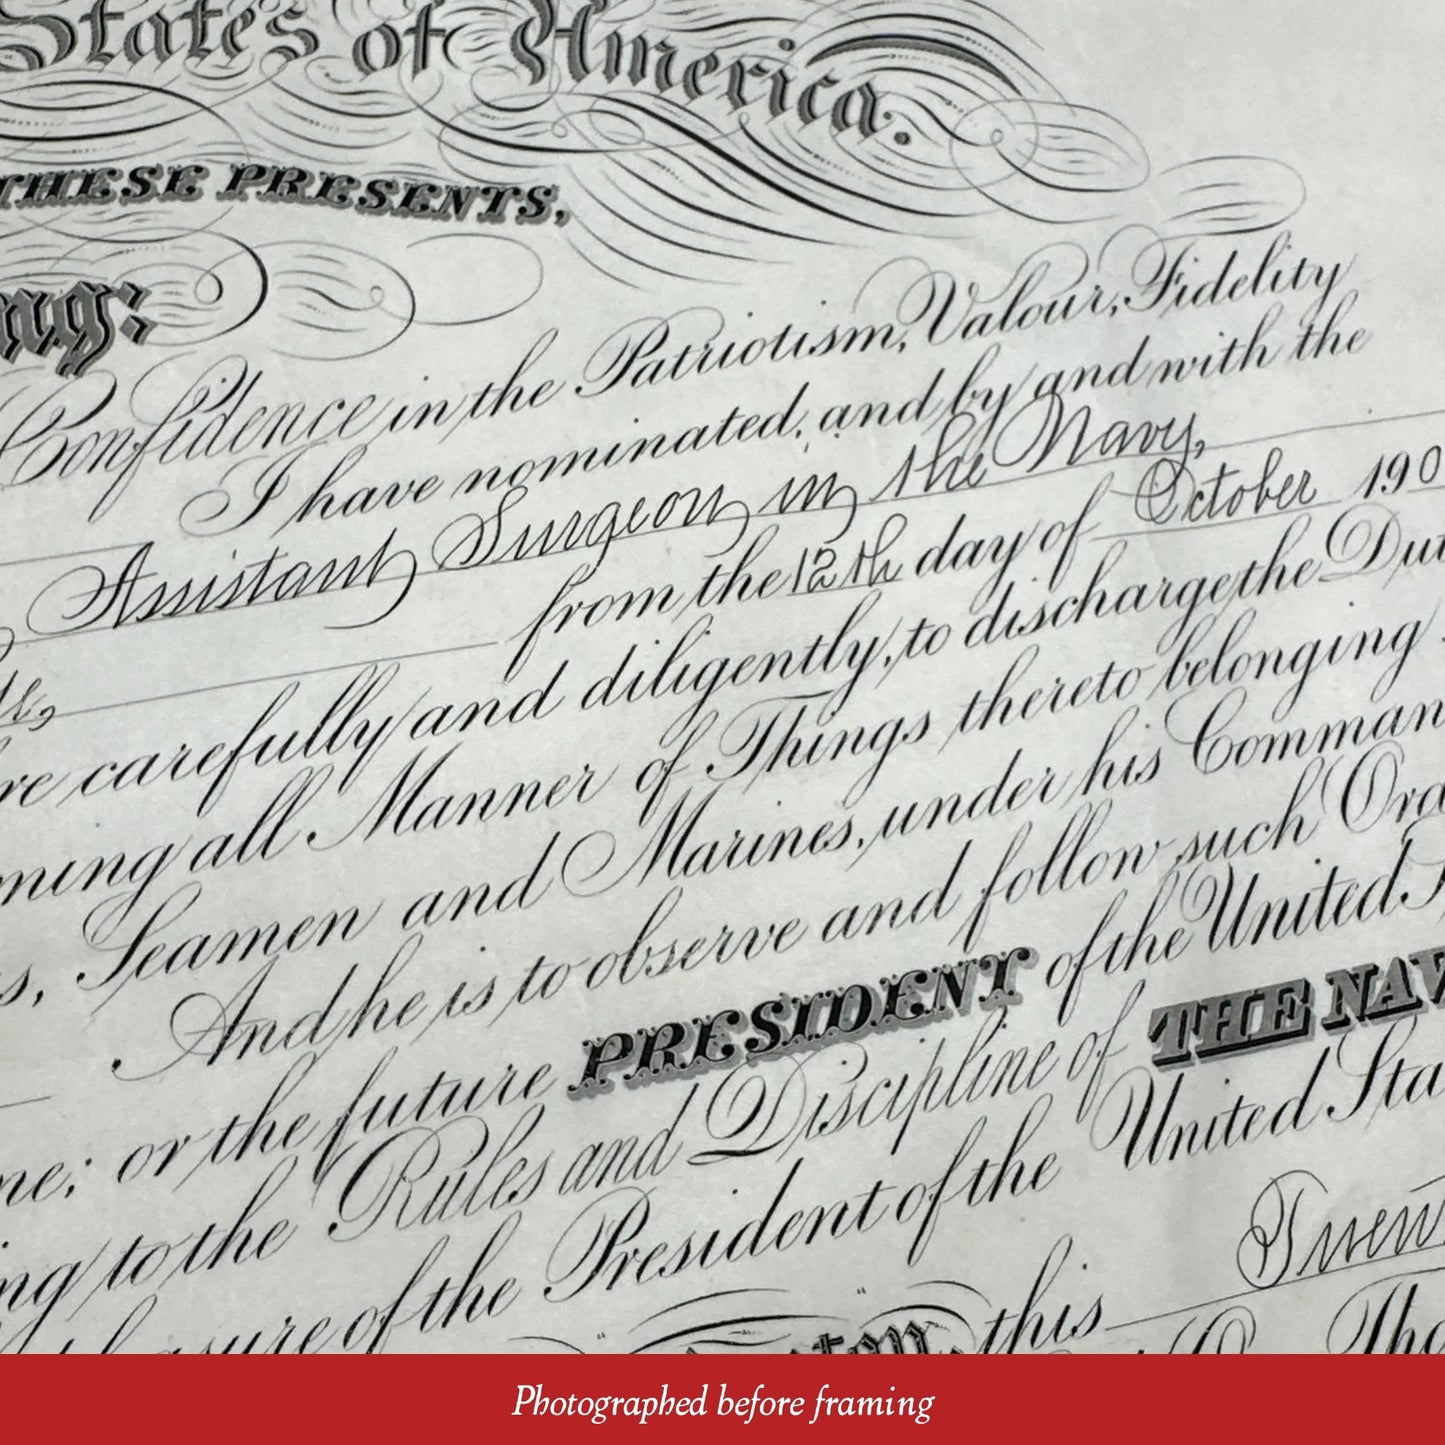 States of America.
THESE PRESENTS,
ng:
Confidence in the Patriotism, Valour, Fidelity
I have nominated, and by and with the
Assistant Surgeon in the Navy,
from the 12th day of October 190
re carefully and diligently, to discharge the Dut
ning all Manner of Things thereto belonging
s, Seamen and Marines, under his Comman
And he is to observe and follow such Ord
me; or the future PRESIDENT of the United S
ng to the Rules and Discipline of THE NAV
of the President of the United Sta
this
Photographed before framing